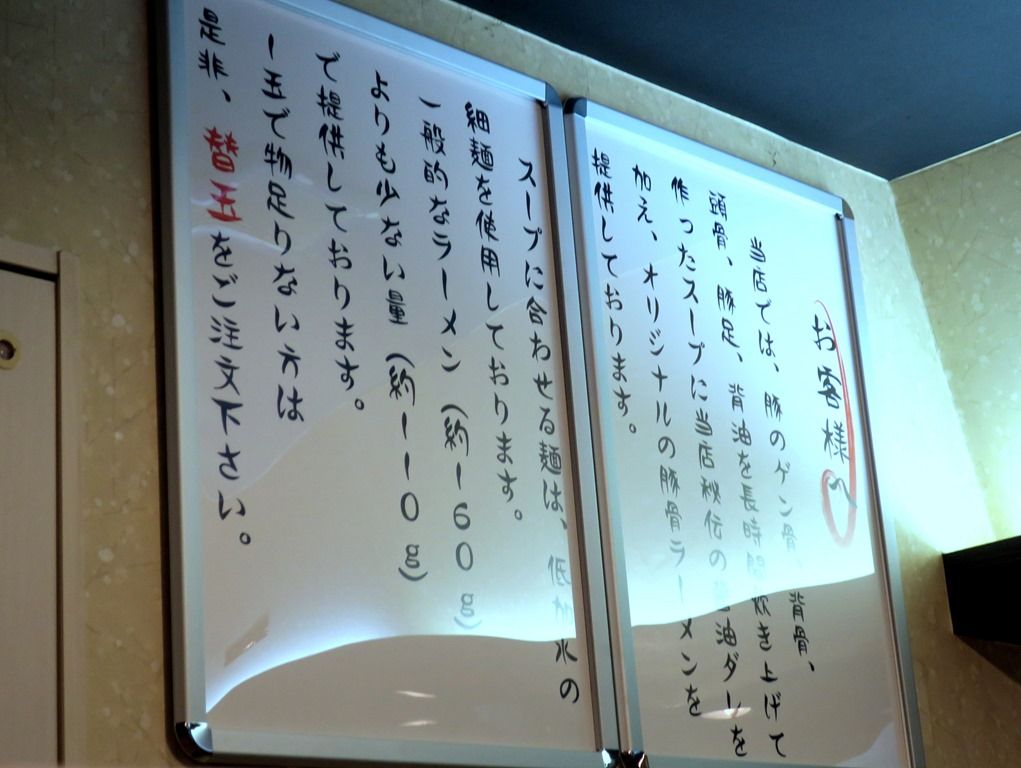 お客様へ
当店では、豚のゲン骨、背骨、
頭骨、豚足、背油を長時間炊き上げて
作ったスープに当店秘伝の醤油ダレを
加え、オリジナルの豚骨ラーメンを
提供しております。
スープに合わせる麺は、低加水の
細麺を使用しております。
一般的なラーメン(約160g)
よりも少ない量(約110g)
で提供しております。
一玉で物足りない方は
是非、替玉をご注文下さい。